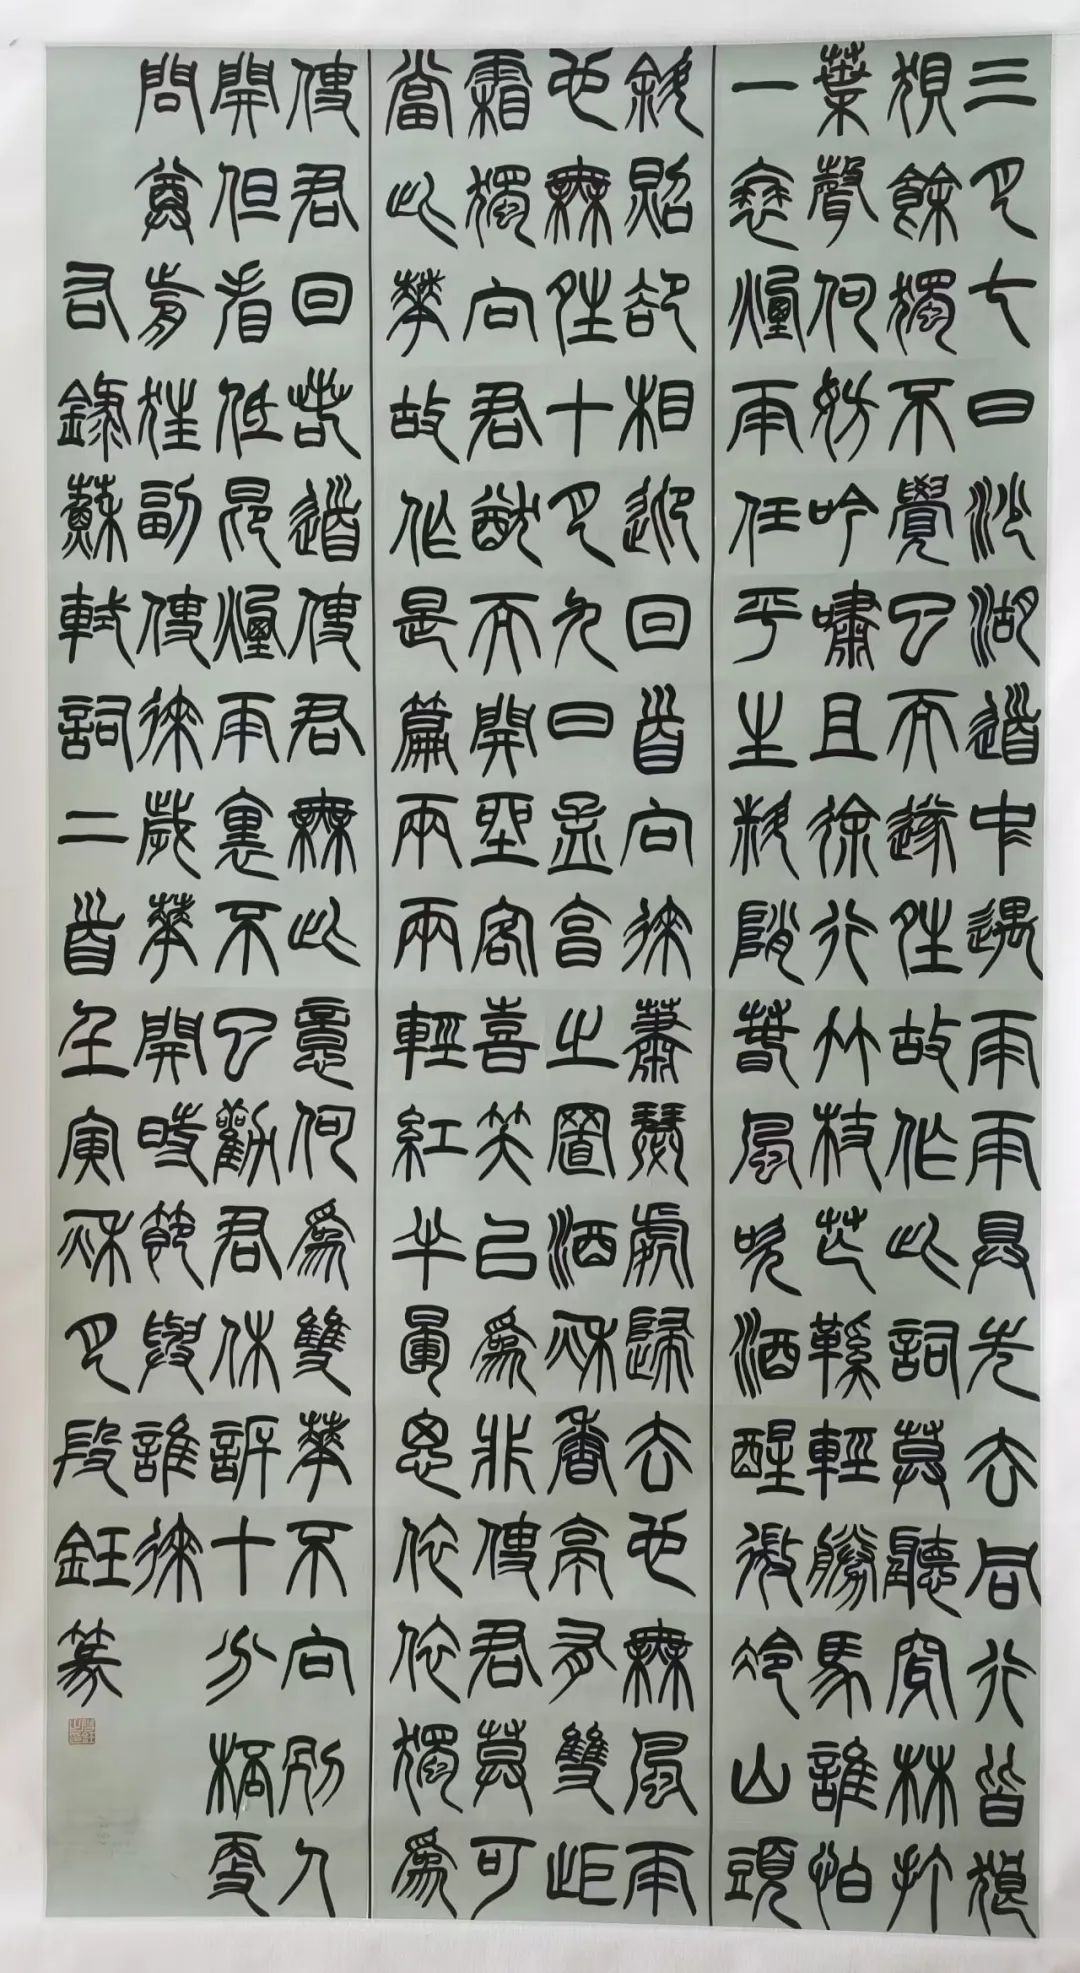 三月七日沙湖道中遇雨雨具先去同行皆狼
狽餘獨不覺已而遂晴故作此詞莫聽穿林打
葉聲何妨吟嘯且徐行竹枝芒鞵輕勝馬誰怕
一蓑煙雨任平生料峭春風吹酒醒微冷山頭
斜照卻相迎回首向來蕭瑟處歸去也無風雨
也無晴十月九日孟官之置酒秋香亭有雙拒
霜獨向君猷而開坐客喜笑以為非使君莫可
當此華故作是篇兩兩輕紅半暈思依依獨為
使君回若道使君無此意何為雙華不向別人
開但看低昂煙雨裏不已勸君休訴十分桮更
問尊前狂副使來歲華開時節與誰來
右錄蘇軾詞二首壬寅秋月段鈺篆